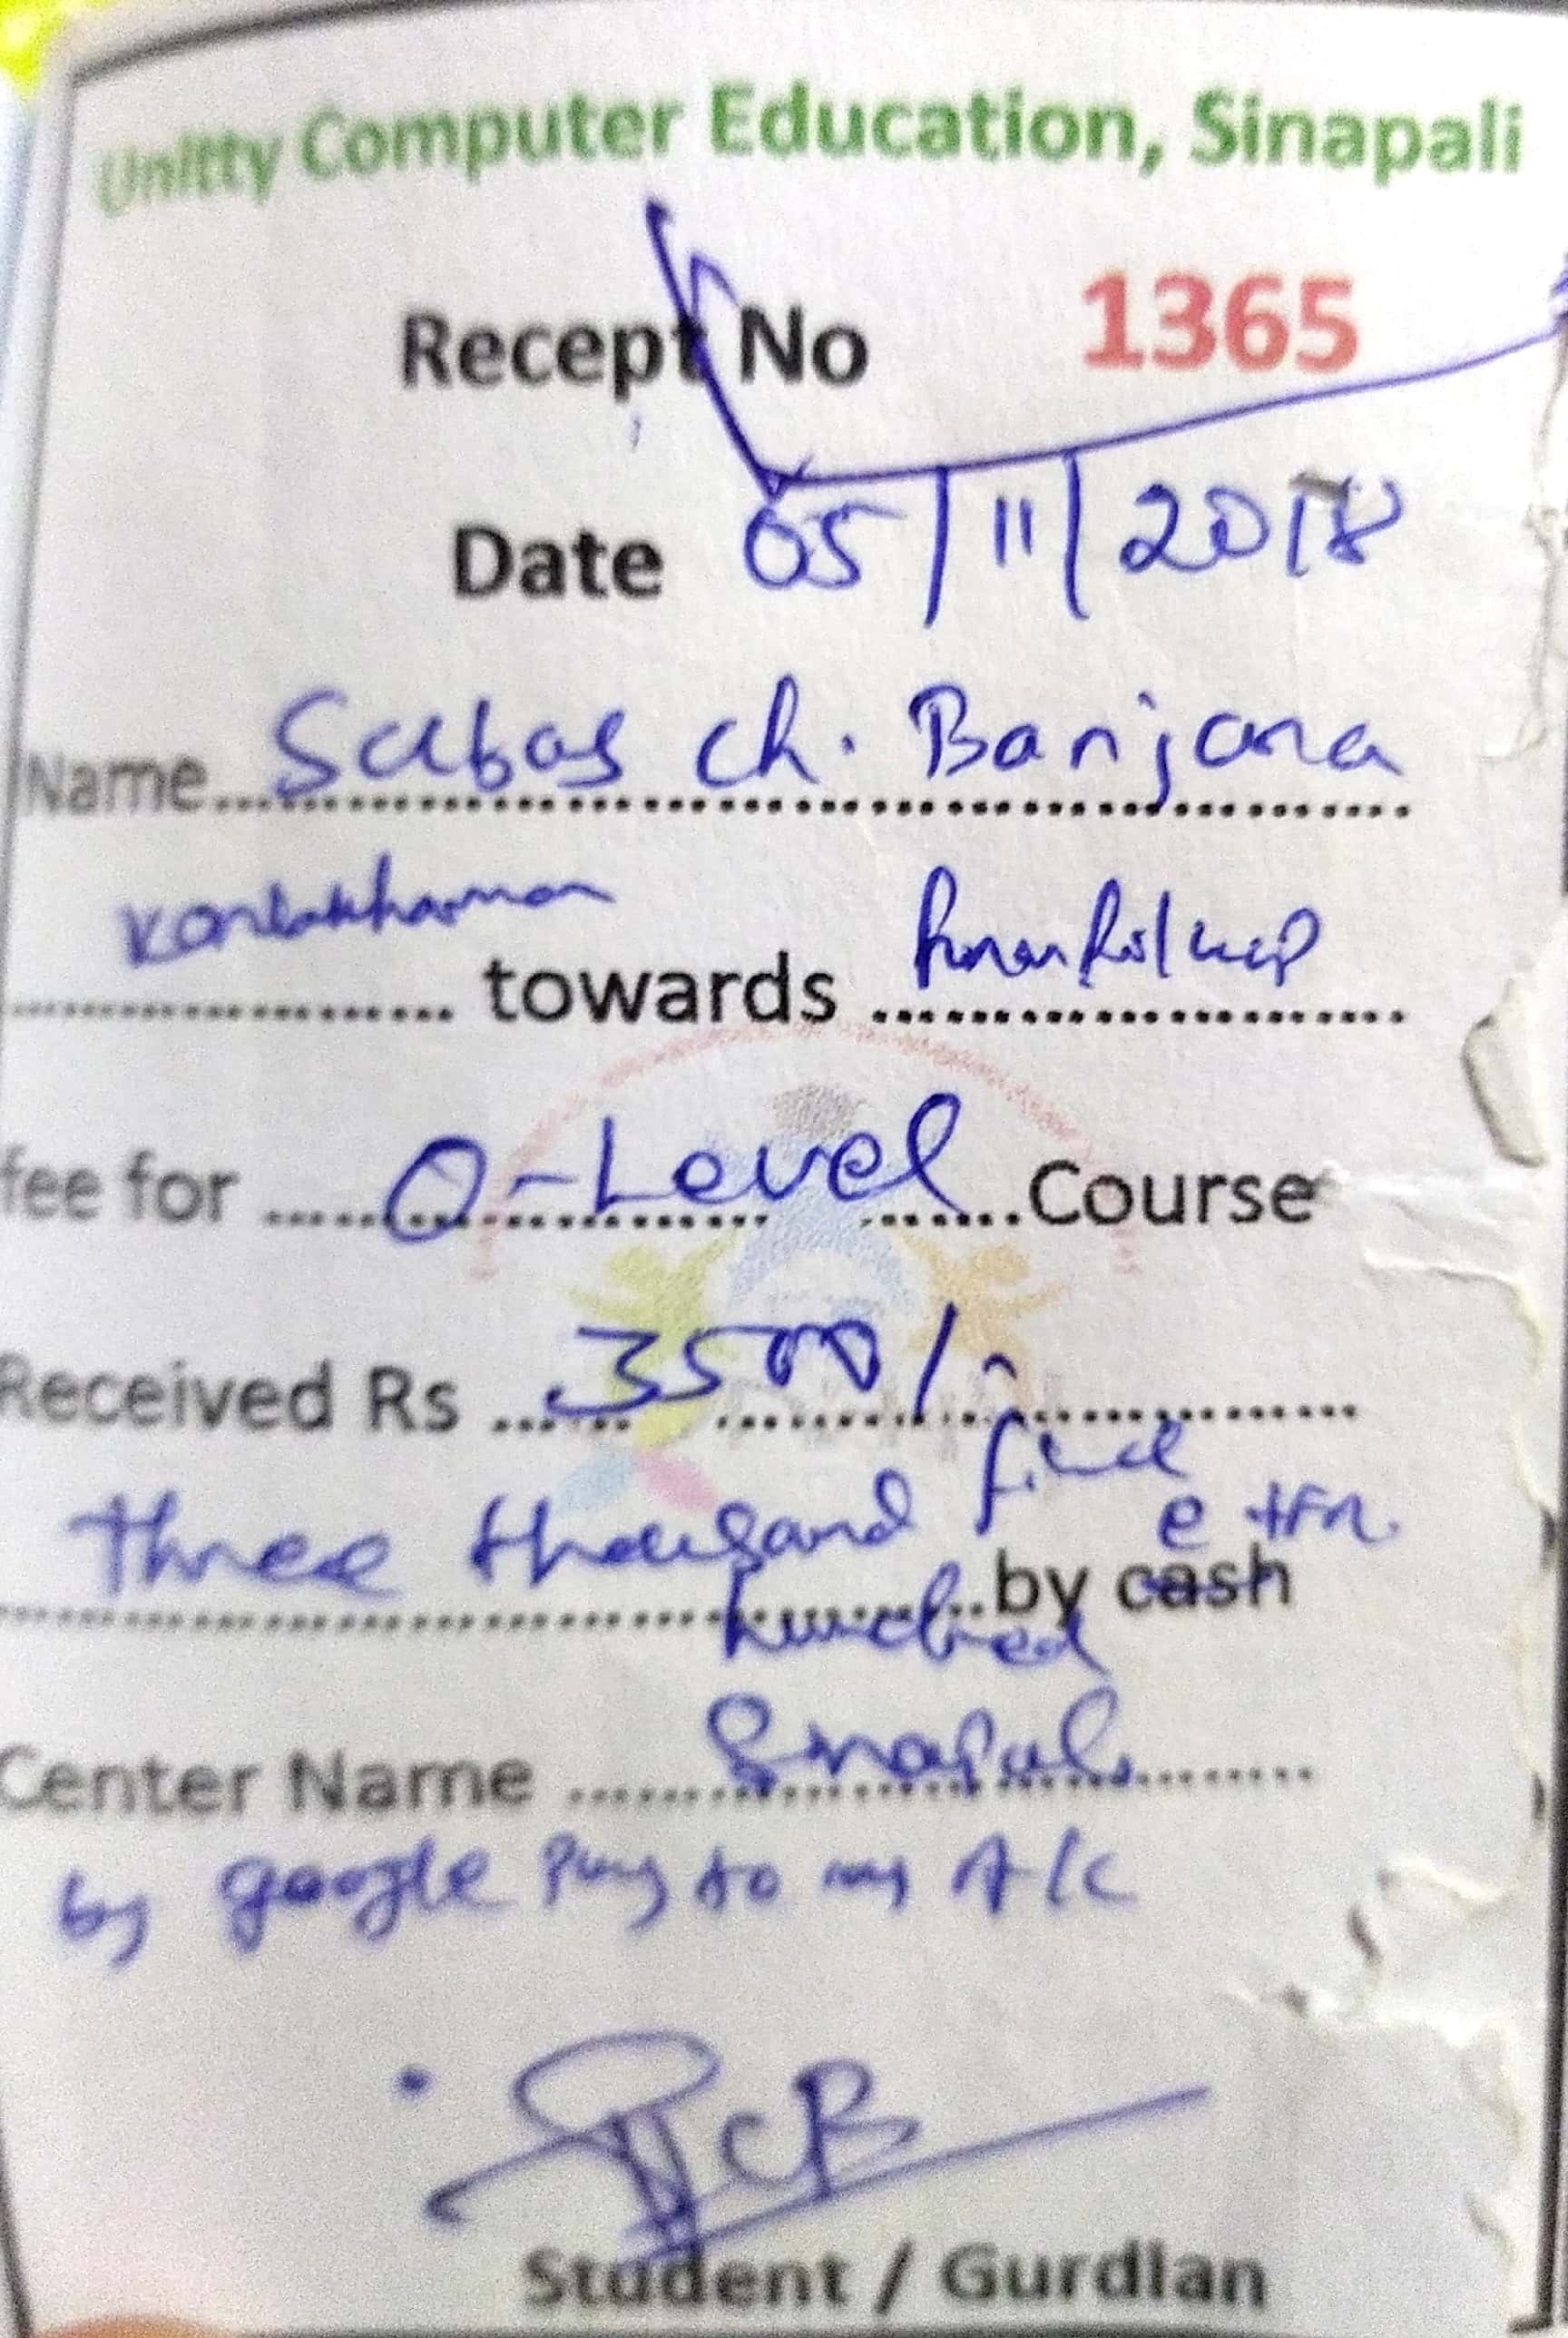 Unitty Computer Education, Sinapali
Recept No 1365
Date 05/11/2018
Name Sabas Ch. Banjara
towards
fee for O-Level Course
Received Rs 3500/-
three thousand five
hundred by cash
Center Name Sinapali
by google Pay to my A/C
Student / Gurdian